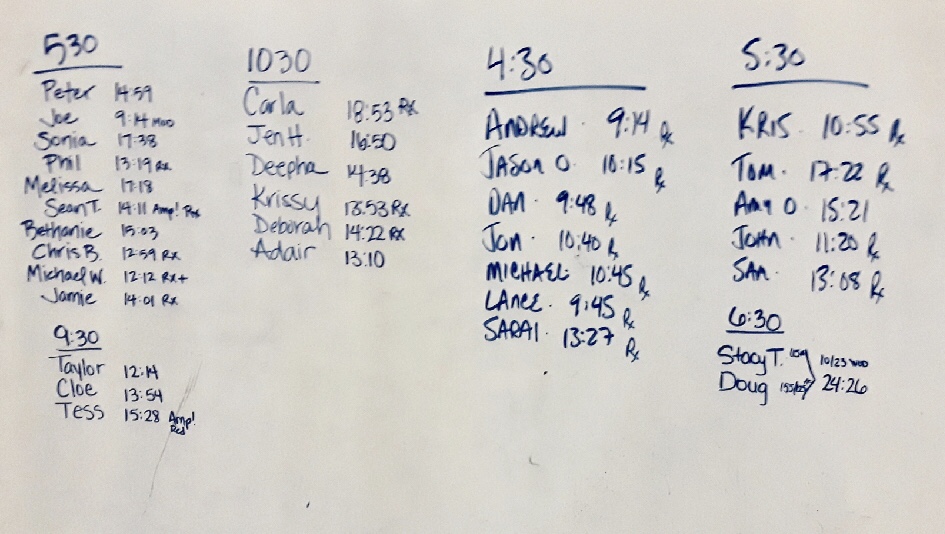 530
Peter 14:59
Joe 9:14 mod
Sonia 17:38
Phil 13:19 Rx
Melissa 17:18
Sean T. 14:11 Amp! Rx
Bethanie 15:03
Chris B. 12:59 Rx
Michael W. 12:12 Rx+
Jamie 14:01 Rx
9:30
Taylor 12:14
Cloe 13:54
Tess 15:28 Amp!
1030
Carla 18:53 Rx
Jen H. 16:50
Deepha 14:38
Krissy 13:53 Rx
Deborah 14:22 Rx
Adair 13:10
4:30
ANDREW · 9:14 Rx
JASON O. 10:15 Rx
DAN · 9:48 Rx
JON · 10:40 Rx
MICHAEL · 10:45 Rx
LANCE · 9:45 Rx
SARAI · 13:27 Rx
5:30
KRIS · 10:55 Rx
TOM · 17:22 Rx
AMY O · 15:21
JOHN · 11:20 Rx
SAM · 13:08 Rx
6:30
Stacy T. 10/23 WOD
Doug 24:26